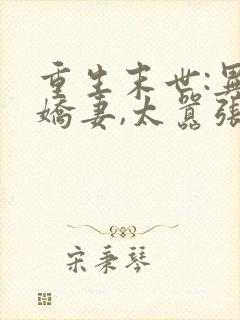 重生末世:
嬌妻,太囂張
宋秉琴